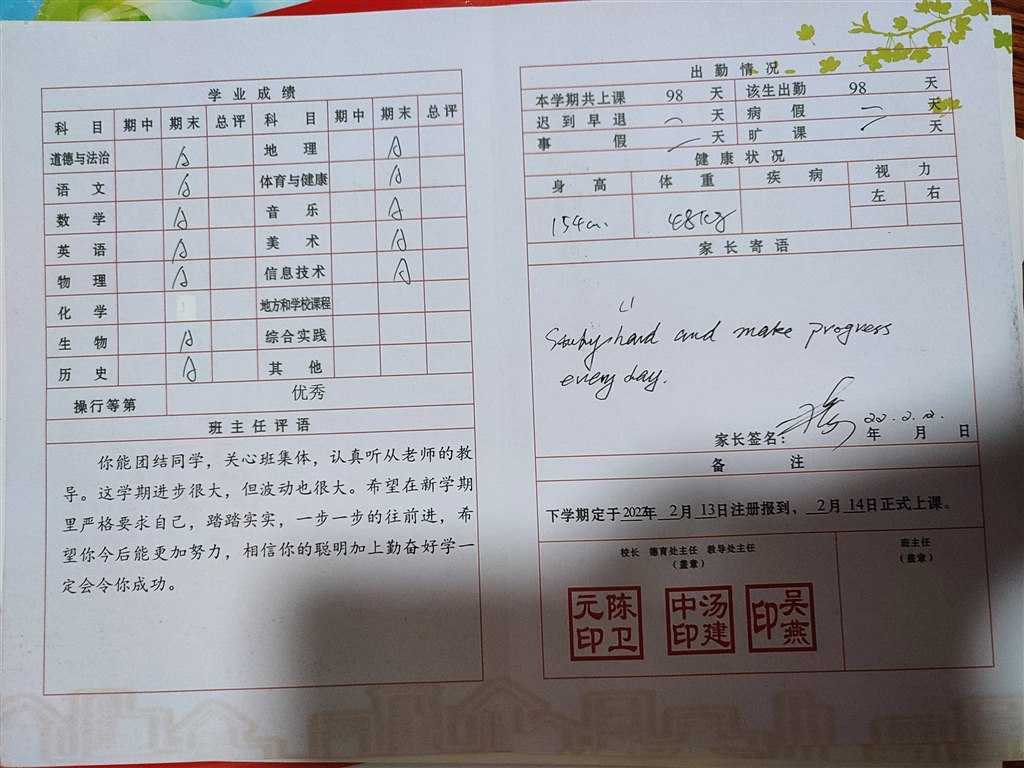 学业成绩
科目 期中 期末 总评 科目 期中 期末 总评
道德与法治 A 地理 A
语文 A 体育与健康 A
数学 A 音乐 A
英语 A 美术 A
物理 A 信息技术 A
化学 地方和学校课程
生物 A 综合实践
历史 A 其他
操行等第 优秀
班主任评语
你能团结同学，关心班集体，认真听从老师的教
导。这学期进步很大，但波动也很大。希望在新学期
里严格要求自己，踏踏实实，一步一步的往前进，希
望你今后能更加努力，相信你的聪明加上勤奋好学一
定会令你成功。
出勤情况
本学期共上课 98 天 该生出勤 98 天
迟到早退 天 病假 天
事假 天 旷课 天
健康状况
身高 体重 疾病 视力
左 右
154cm. 48kg
家长寄语
Study hard and make progress
every day.
家长签名： 年 月 日
备注
下学期定于202年 2月 13日注册报到，2月 14日正式上课。
校长 德育处主任 教导处主任 班主任
（盖章） （盖章）
陈卫元印 汤建中印 吴燕印